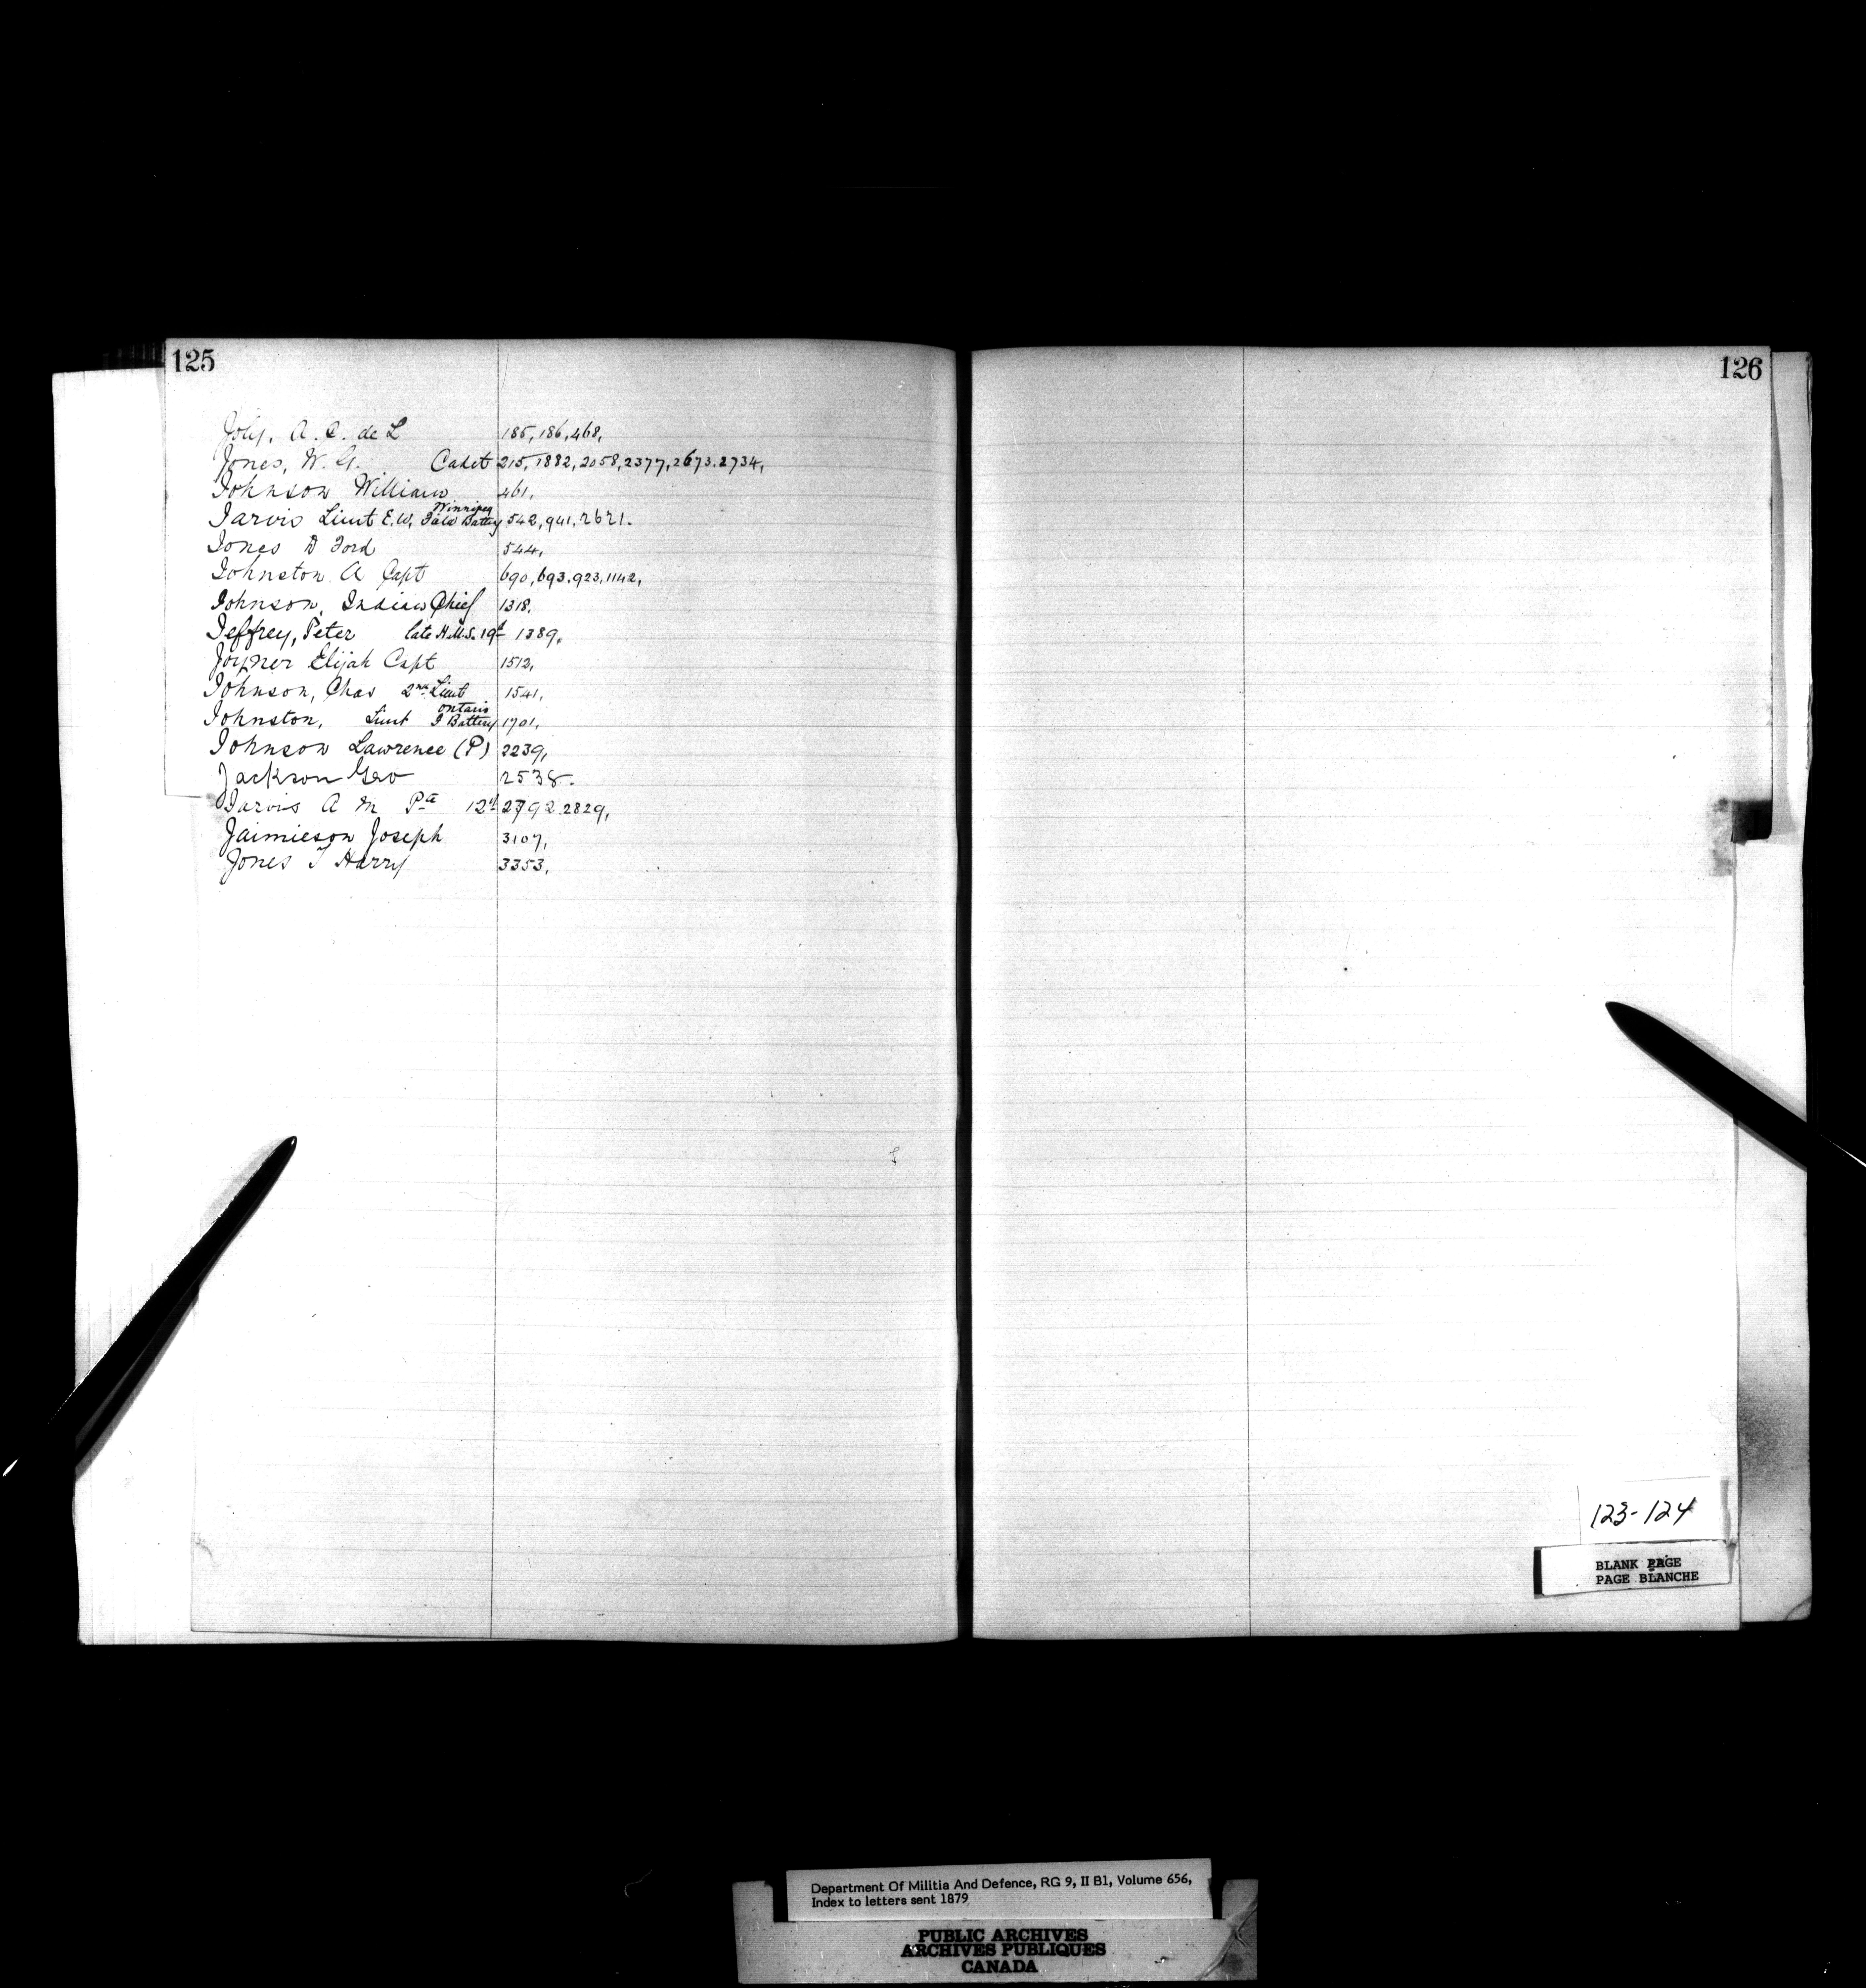 125
Joly, A. C. de L 185, 186, 468,
Jones, W. G. Cadet 215, 1882, 2058, 2377, 2673. 2734,
Johnson William 461,
Jarvis Lieut E. W. Winnipeg Field Battery 542, 941, 2621.
Jones D Ford 544,
Johnston A Capt 690, 693. 923, 1142,
Johnson, Indian Chief 1318.
Jeffrey, Peter late H.M.S. 19th 1389.
Joyner Elijah Capt 1512,
Johnson, Chas 2nd Lieut 1541,
Johnston, Lieut Ontario F Battery 1701,
Johnson Lawrence (P) 2239,
Jackson Geo 2538.
Jarvis A M Pte 12th 2792. 2829,
Jaimieson Joseph 3107,
Jones T Harry 3353,
126
123-124
BLANK PAGE
PAGE BLANCHE
Department Of Militia And Defence, RG 9, II B1, Volume 656,
Index to letters sent 1879
PUBLIC ARCHIVES
ARCHIVES PUBLIQUES
CANADA